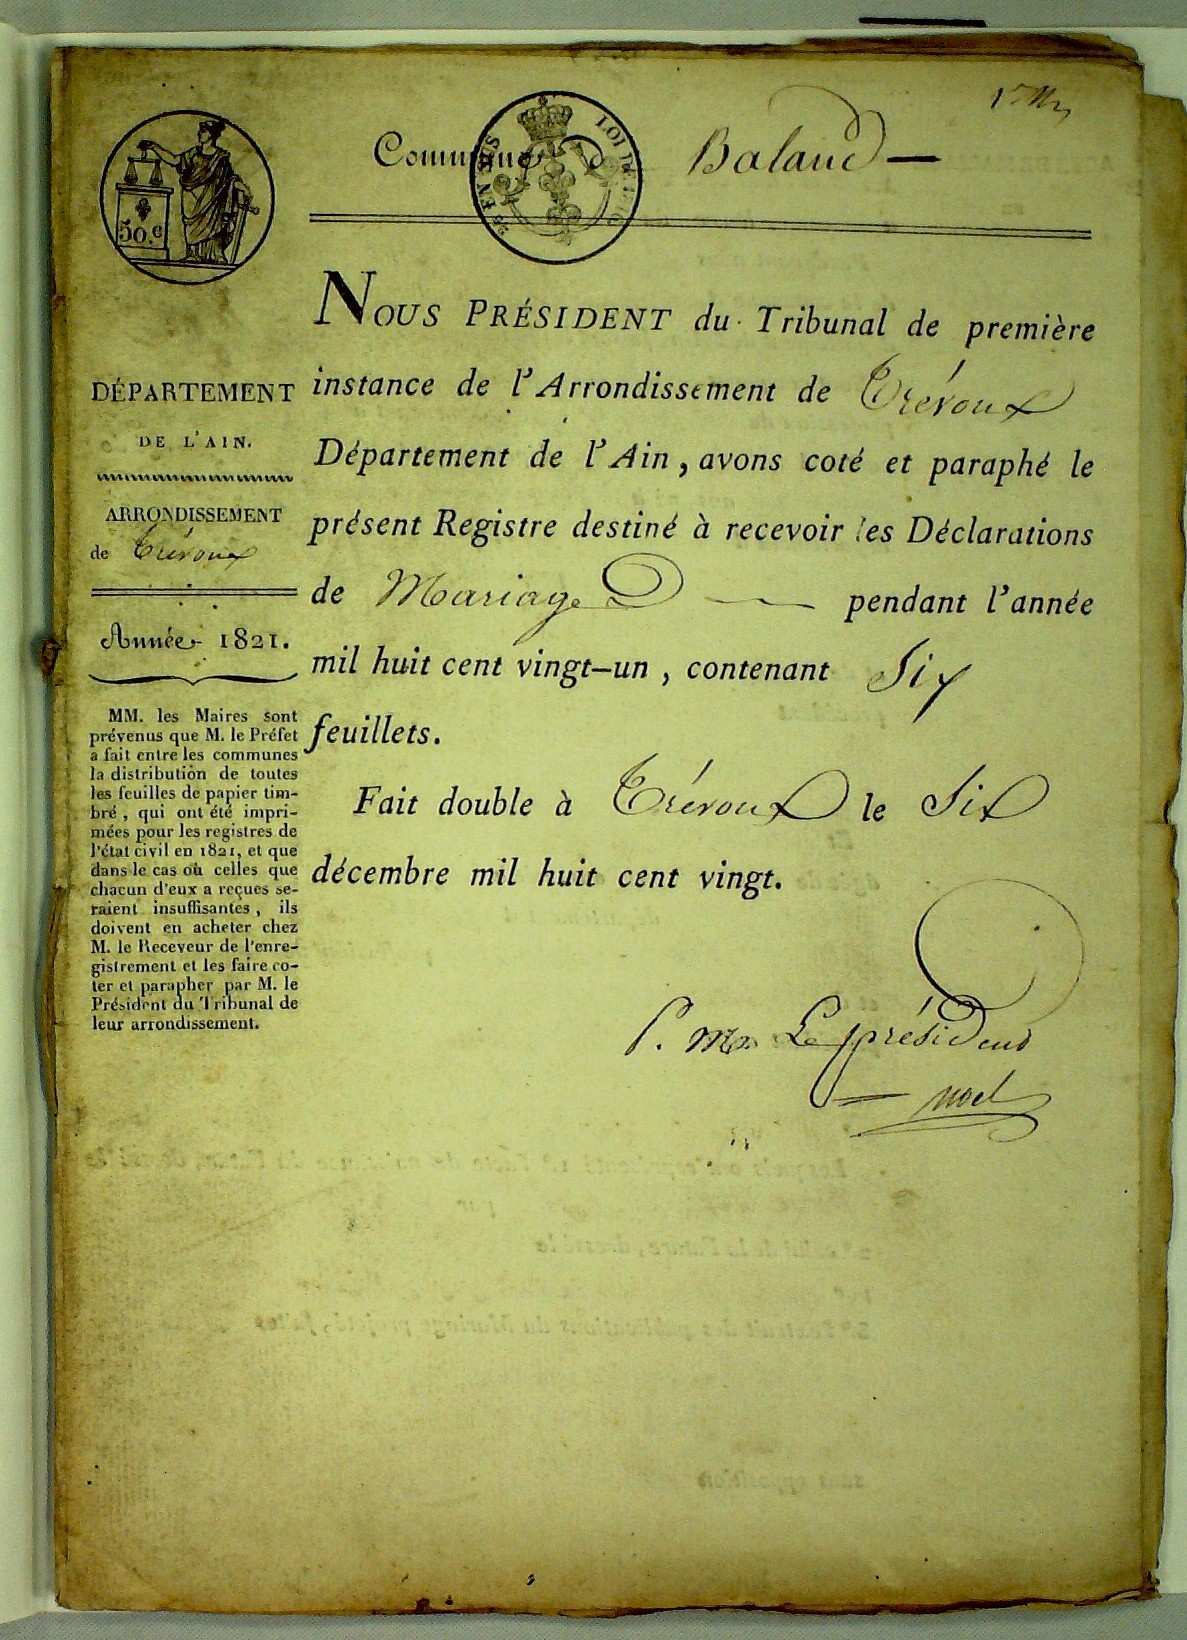 Commune de Baland —
50.c
EN SUS
LOI DE 1816
NOUS PRÉSIDENT du Tribunal de première
instance de l'Arrondissement de Trévoux
Département de l'Ain, avons coté et paraphé le
présent Registre destiné à recevoir les Déclarations
de Mariage — pendant l'année
mil huit cent vingt-un, contenant Six
feuillets.
Fait double à Trévoux le Six
décembre mil huit cent vingt.
Le président
Noel
DÉPARTEMENT
DE L'AIN.
ARRONDISSEMENT
de Trévoux
Année 1821.
MM. les Maires sont
prévenus que M. le Préfet
a fait entre les communes
la distribution de toutes
les feuilles de papier tim-
bré, qui ont été impri-
mées pour les registres de
l'état civil en 1821, et que
dans le cas où celles que
chacun d'eux a reçues se-
raient insuffisantes, ils
doivent en acheter chez
M. le Receveur de l'enre-
gistrement et les faire co-
ter et parapher par M. le
Président du Tribunal de
leur arrondissement.